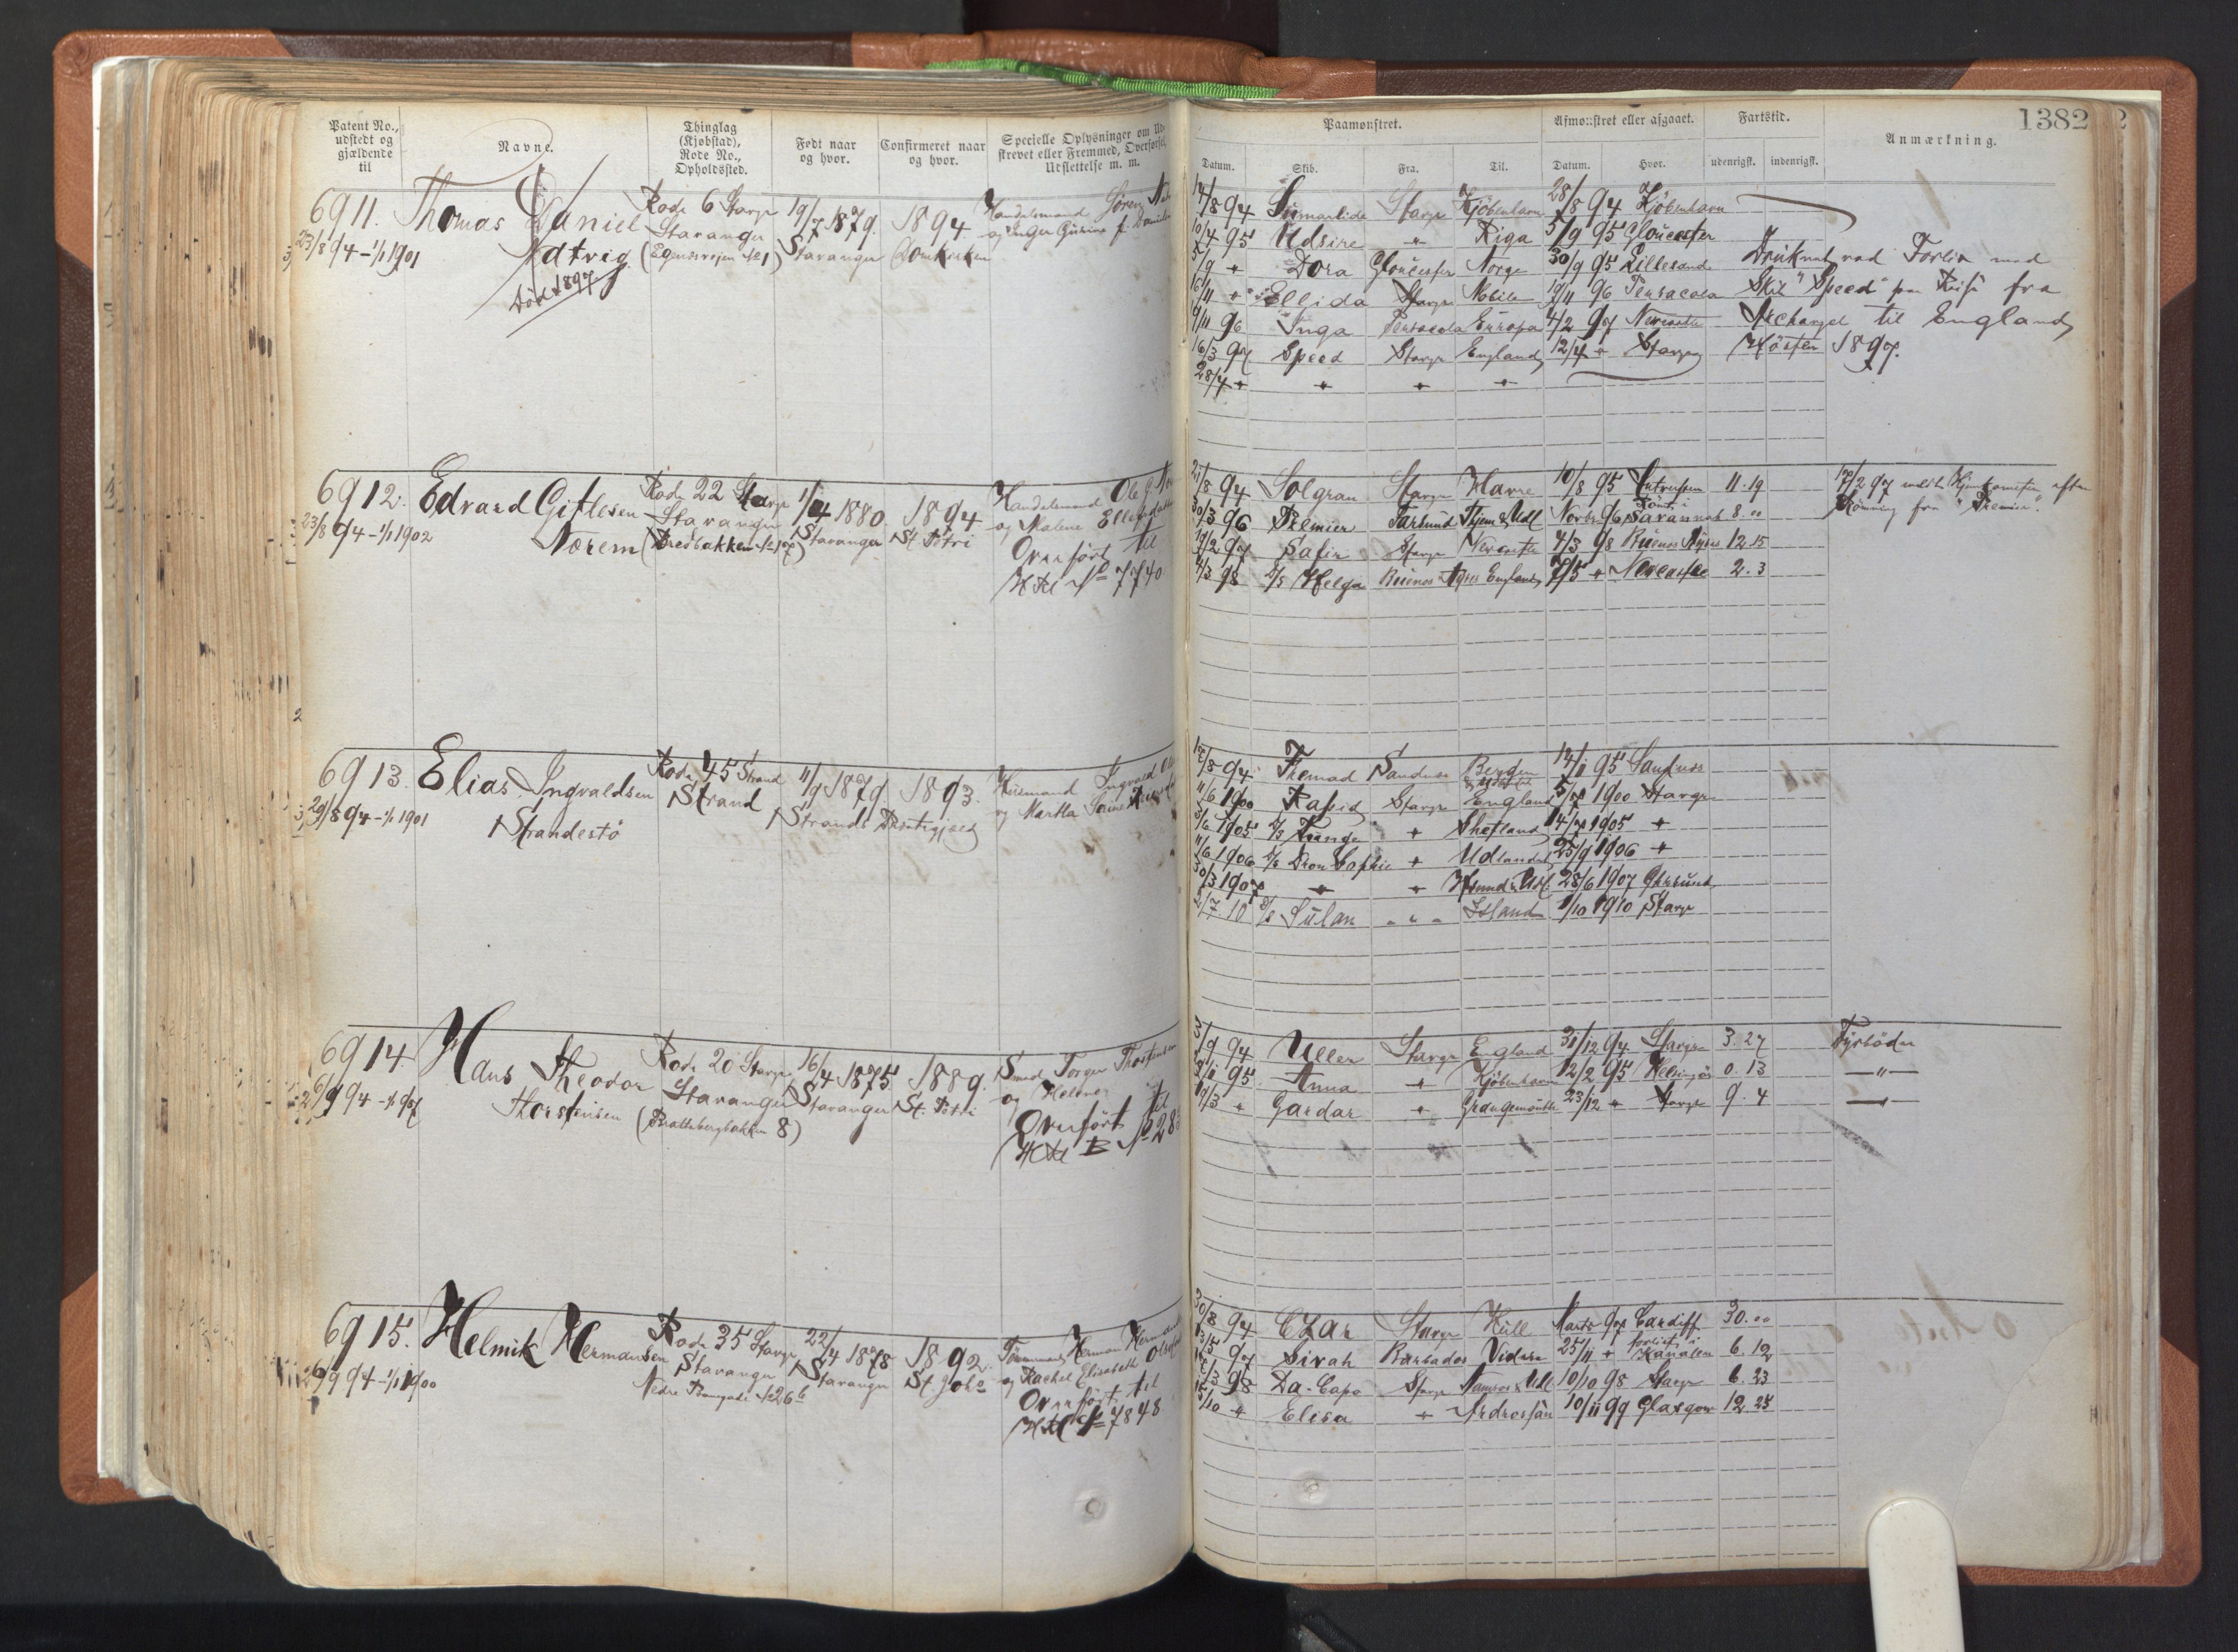 1382
Patent No., udstedt og gjældende til
Navne.
Thinglag (Kjøbstad), Rode No., Opholdssted.
Født naar og hvor.
Confirmeret naar og hvor.
Specielle Oplysninger om Ud-
strevet eller Fremmed, Overførsel,
Udslettelse m. m.
Paamønstret.
Afmønstret eller afgaaet.
Fartstid.
Anmærkning.
Datum. Skib. Fra. Til. Datum. Hvor. udenrigsk. indenrigsk.
6911. Thomas Daniel Rode 6 Stavgr 19/7 1879. 1894 Handelsmand Søren
23/8 94 - 1/1 1901 Stavanger Stavanger Domkirken
(Egenesveien № 1)
Død 1897
14/8 94 Stavgr Kjøbenhavn 28/8 94 Kjøbenhavn
10/4 95 Udsire " Riga 5/9 95 Gloucester
5/9 " Dora Gloucester Norge 30/9 95 Lillesand Druknet ved Forlis med
16/11 " Ellida Stavgr Mobile 19/11 96 Pensacola Skib "Speed" paa Reise fra
9/11 96 Inga Pensacola Europa 4/2 97 Newcastle Archangel til England
16/3 97 Speed Stavgr England 12/4 " Stavgr Høsten 1897.
28/4 " " " "
6912. Edvard Gitlesen Rode 22 Stavgr 1/4 1880 1894 Handelsmand Ole
23/8 94 - 1/1 1902 Nørem Stavanger Stavanger St. Petri og Malene
(Bredbakken № 17) Overført til
Htel № 7740
21/8 94 Solgran Stavgr Havre 10/8 95 Antwerpen 11.19
30/3 96 Premier Farsund Hjem & Udl Novbr 96 Rømt i Savannah 8.00
19/2 97 Safir Stavgr Newcastle 4/3 98 Buenos Ayres 12.15
4/3 98 S/S Helga Buenos Ayres England 7/5 " Newcastle 2.3
17/2 97 meldt Hjemkomsten efter
Rømning fra "Premier".
6913. Elias Ingvaldsen Rode 45 Strand 11/9 1879 1893. Husmand Ingvald
29/8 94 - 1/1 1901 Strandestø Strand Strands Præstegjæld og Martha
18/8 94 Fremad Sandnes Bergen & Udlandet 14/1 95 Sandnes
11/6 1900 Rapid Stavgr England 5/7 1900 Stavgr
3/6 1905 " Shetland 14/7 1905 "
11/6 1906 Dron Sophie " Udlandet 25/9 1906 "
30/3 1907 " " 28/6 1907
2/7 10 S/S Sulan " " " Island 1/10 1910 Stavgr
6914. Hans Theodor Rode 20 Stavgr 16/4 1875 1889. Smed Torger Thorstensen
26/9 94 - 1/1 97 Thorstensen Stavanger Stavanger St. Petri og Helene
(Brattebergbakken 8) Overført til
Htel B № 28
3/9 94 Uller Stavgr England 31/12 94 Stavgr 3.27 Fyrbøder
95 Anna " Kjøbenhavn 12/2 95 Helsingør 0.13 — " —
19/3 " Gardar " Grangemouth 23/12 " Stavgr 9.4 —
6915. Helmik Hermansen Rode 35 Stavgr 22/4 1878 1892. Tømmermand Herman Hermansen
26/9 94 - 1/1 1900 Stavanger Stavanger St. Joh. og Rachel Elisabeth
Nedre № 26 b Overført til
Htel № 7848
30/8 94 Czar Stavgr Hull Marts 97 Cardiff 30.00
13/5 97 Sirah Barbados Videre 25/11 " forlist i Kanalen 6.12
98 Da-Capo Stavgr Namsos & Udl 10/10 98 Stavgr 6.23
15/10 " Elisa " Ardrossan 10/11 99 Glasgow 12.25